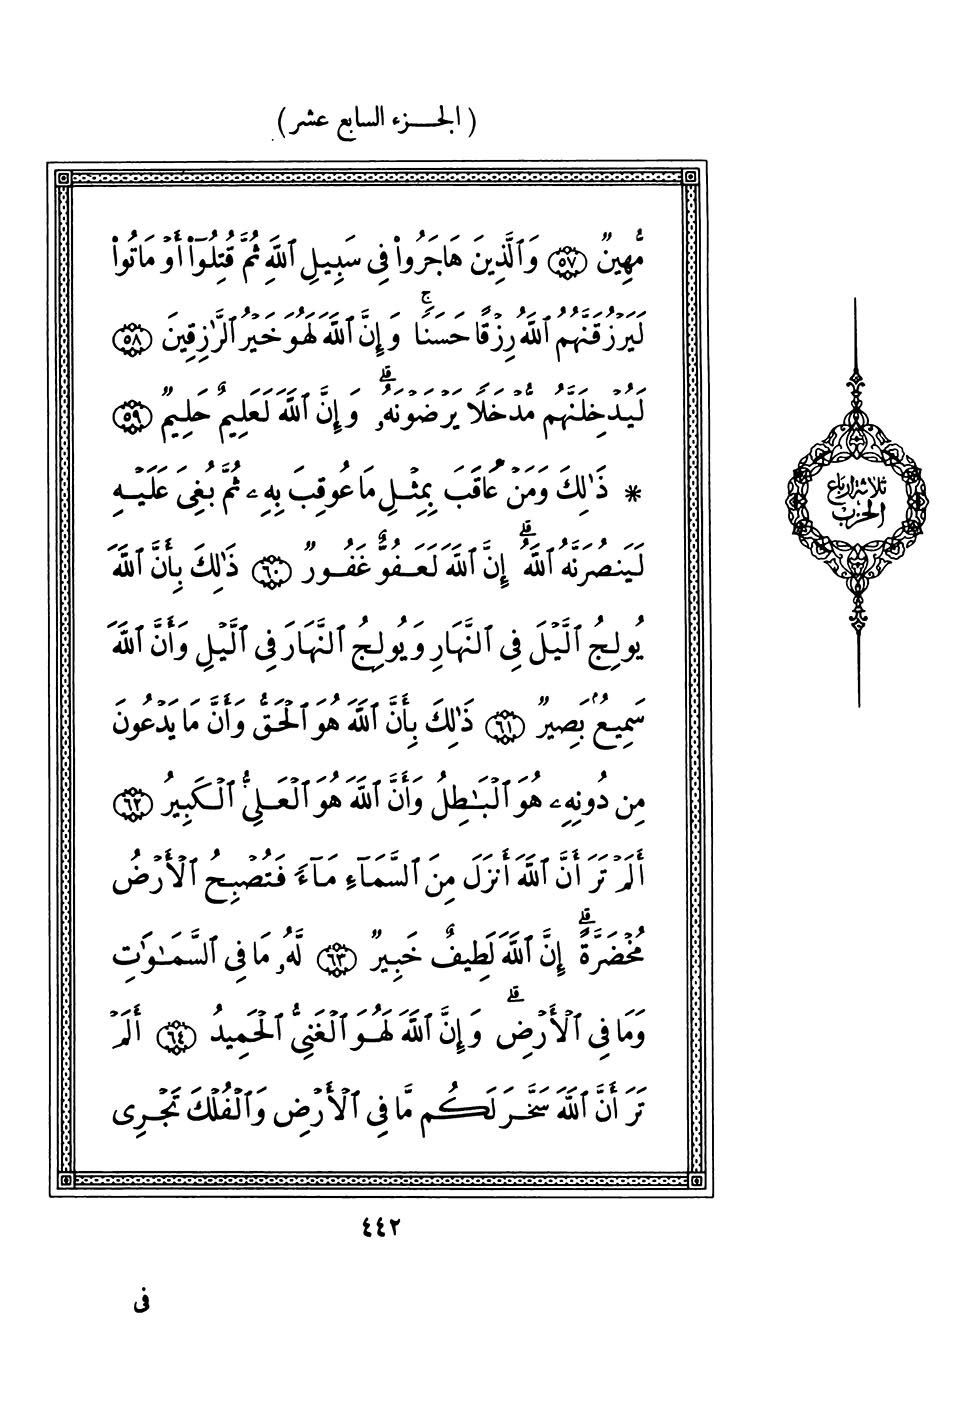 ( الجزء السابع عشر )
مُّهِينٌ ٥٧ وَٱلَّذِينَ هَاجَرُواْ فِى سَبِيلِ ٱللَّهِ ثُمَّ قُتِلُوٓاْ أَوْ مَاتُواْ
لَيَرْزُقَنَّهُمُ ٱللَّهُ رِزْقًا حَسَنًاۚ وَإِنَّ ٱللَّهَ لَهُوَ خَيْرُ ٱلرَّٰزِقِينَ ٥٨
لَيُدْخِلَنَّهُم مُّدْخَلًا يَرْضَوْنَهُۥۗ وَإِنَّ ٱللَّهَ لَعَلِيمٌ حَلِيمٌ ٥٩
* ذَٰلِكَ وَمَنْ عَاقَبَ بِمِثْلِ مَا عُوقِبَ بِهِۦ ثُمَّ بُغِىَ عَلَيْهِ
لَيَنصُرَنَّهُ ٱللَّهُۗ إِنَّ ٱللَّهَ لَعَفُوٌّ غَفُورٌ ٦٠ ذَٰلِكَ بِأَنَّ ٱللَّهَ
يُولِجُ ٱلَّيْلَ فِى ٱلنَّهَارِ وَيُولِجُ ٱلنَّهَارَ فِى ٱلَّيْلِ وَأَنَّ ٱللَّهَ
سَمِيعُۢ بَصِيرٌ ٦١ ذَٰلِكَ بِأَنَّ ٱللَّهَ هُوَ ٱلْحَقُّ وَأَنَّ مَا يَدْعُونَ
مِن دُونِهِۦ هُوَ ٱلْبَٰطِلُ وَأَنَّ ٱللَّهَ هُوَ ٱلْعَلِىُّ ٱلْكَبِيرُ ٦٢
أَلَمْ تَرَ أَنَّ ٱللَّهَ أَنزَلَ مِنَ ٱلسَّمَآءِ مَآءً فَتُصْبِحُ ٱلْأَرْضُ
مُخْضَرَّةًۗ إِنَّ ٱللَّهَ لَطِيفٌ خَبِيرٌ ٦٣ لَّهُۥ مَا فِى ٱلسَّمَٰوَٰتِ
وَمَا فِى ٱلْأَرْضِۗ وَإِنَّ ٱللَّهَ لَهُوَ ٱلْغَنِىُّ ٱلْحَمِيدُ ٦٤ أَلَمْ
تَرَ أَنَّ ٱللَّهَ سَخَّرَ لَكُم مَّا فِى ٱلْأَرْضِ وَٱلْفُلْكَ تَجْرِى
ثلاثة أرباع
الحزب
٤٤٢
فى